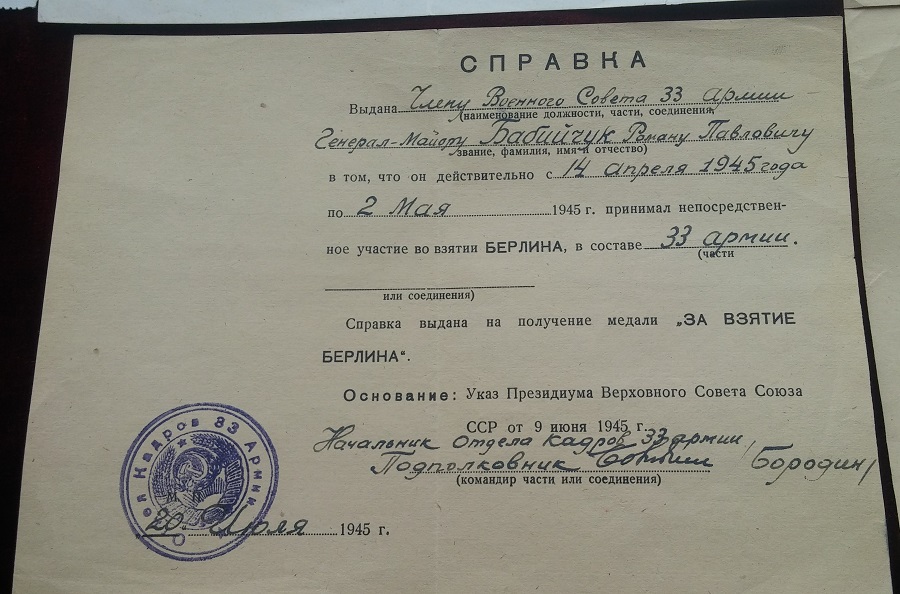 СПРАВКА
Выдана Члену Военного Совета 33 армии
(наименование должности, части, соединения,
Генерал-Майору Бабийчук Роману Павловичу
звание, фамилия, имя и отчество)
в том, что он действительно с 14 апреля 1945 года
по 2 Мая 1945 г. принимал непосредствен-
ное участие во взятии БЕРЛИНА, в составе 33 армии.
(части
или соединения)
Справка выдана на получение медали „ЗА ВЗЯТИЕ
БЕРЛИНА“.
Основание: Указ Президиума Верховного Совета Союза
ССР от 9 июня 1945 г.
Начальник отдела кадров 33 армии
Подполковник /Бородин/
(командир части или соединения)
Отдел Кадров 33 Армии
М.
20 Июля 1945 г.